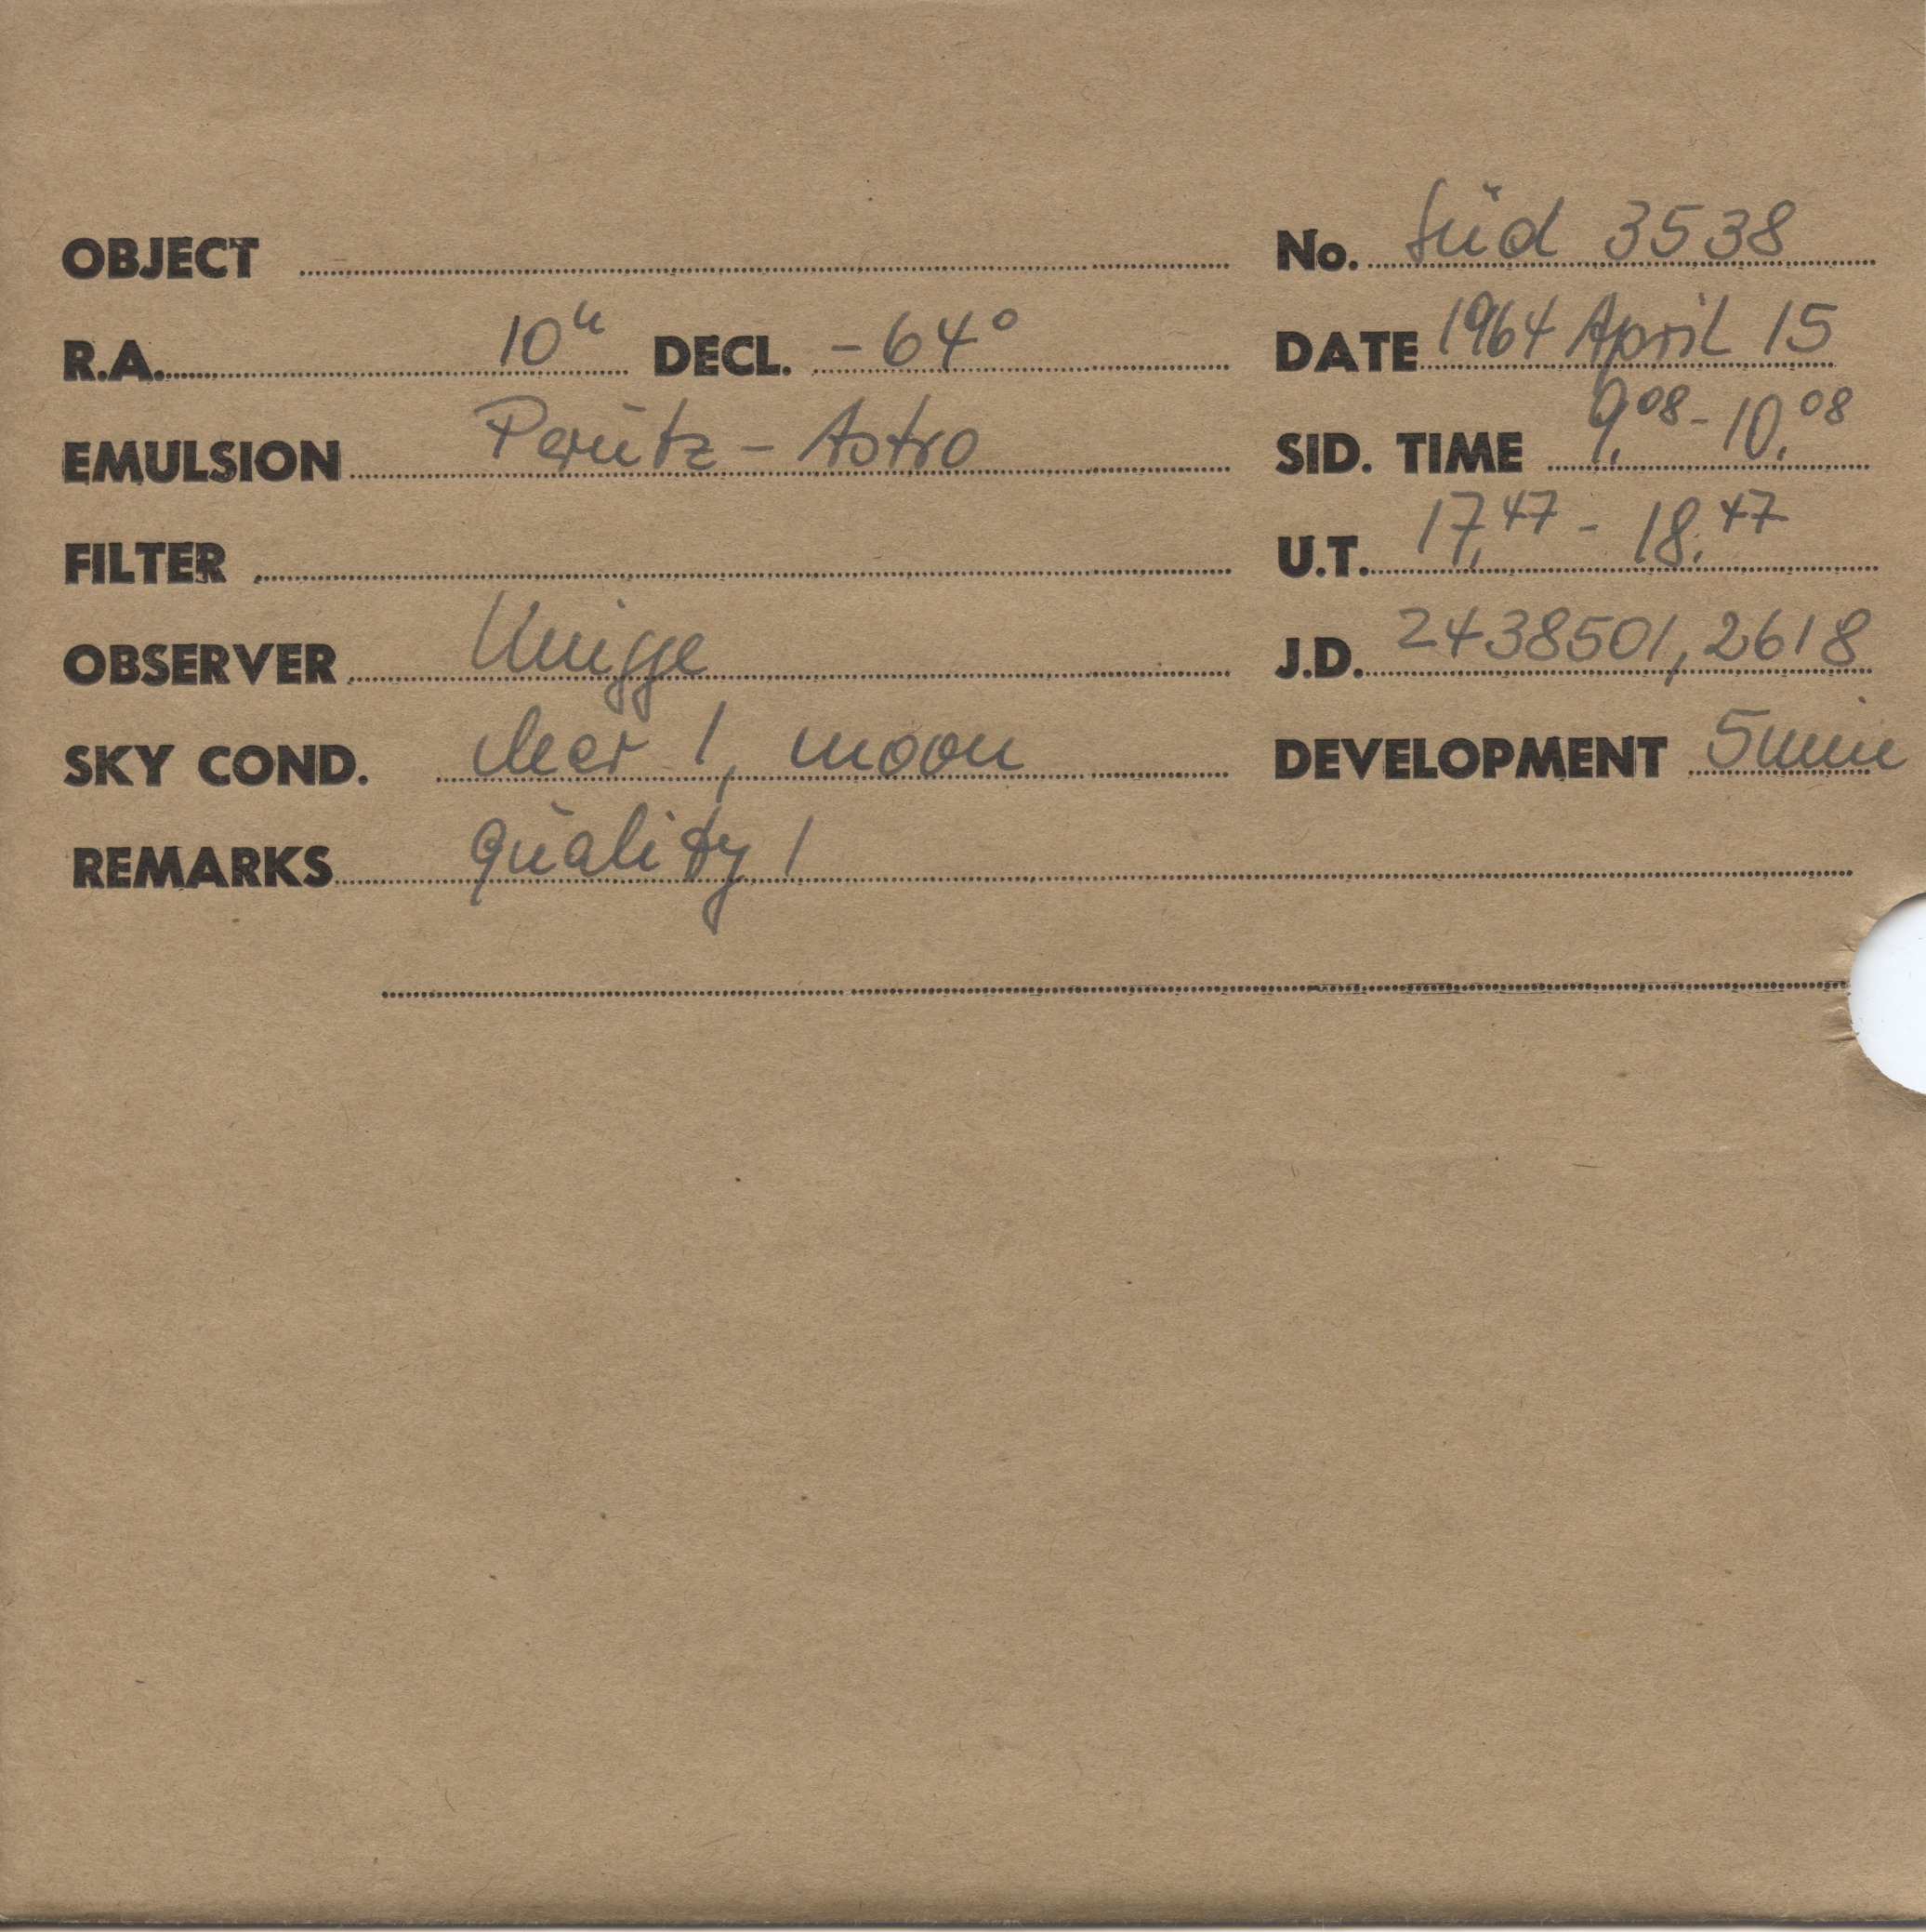 OBJECT No. Süd 3538
R.A. 10h DECL. -64° DATE 1964 April 15
EMULSION Perutz - Astro SID. TIME 9.08 - 10.08
FILTER U.T. 17.47 - 18.47
OBSERVER Knigge J.D. 2438501,2618
SKY COND. clear 1, moon DEVELOPMENT 5min
REMARKS quality 1